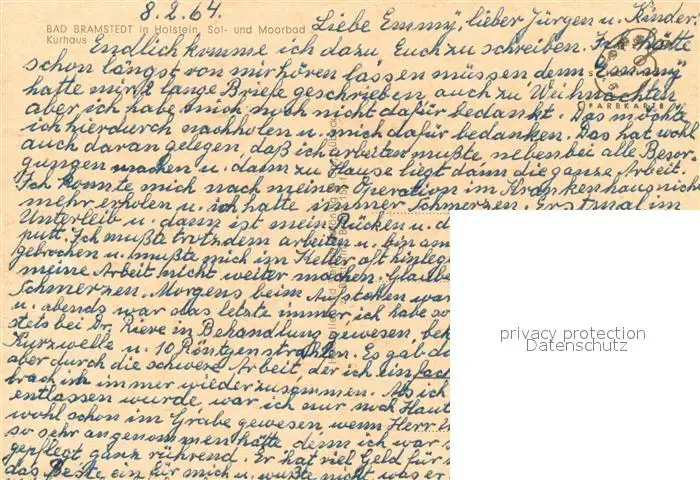 8.2.64.
BAD BRAMSTEDT in Holstein, Sol- und Moorbad
Kurhaus
Liebe Emmy, lieber Jürgen u. Kinder.
Endlich komme ich dazu, Euch zu schreiben. Ich hätte
schon längst von mir hören lassen müssen denn Emmy
hatte mir 2 lange Briefe geschrieben auch zu Weihnachten
aber ich habe mich noch nicht dafür bedankt. Das möchte
FARBKARTE
ich hierdurch nachholen u. mich dafür bedanken. Das hat wohl
auch daran gelegen, daß ich arbeiten mußte, nebenbei alle Besor-
gungen machen u. dann zu Hause liegt dann die ganze Arbeit.
Ich konnte mich nach meiner Operation im Krankenhaus nicht
mehr erholen u. ich hatte immer Schmerzen. Erstmal im
Unterleib u. dann ist mein Rücken u. d
putt. Ich mußte trotzdem arbeiten u. bin am
gebrochen u. mußte mich im Keller oft hinleg
meine Arbeit nicht weiter machen. Glaube
Schmerzen. Morgens beim Aufstehen war
u. abends war das letzte immer, ich habe so
stets bei Dr. Rieve in Behandlung gewesen, bek
Kurzwelle u. 10 Röntgenstrahlen. Es gab da
aber durch die schwere Arbeit, der ich einfach
brach ich immer wieder zusammen. Als ich
entlassen wurde war ich nur noch Haut
wohl schon im Grabe gewesen wenn Herr
so sehr angenommen hätte, denn ich war s
gepflegt ganz rührend. Er hat viel Geld für
das Beste ein für mich u. wußte nicht was er
privacy protection
Datenschutz